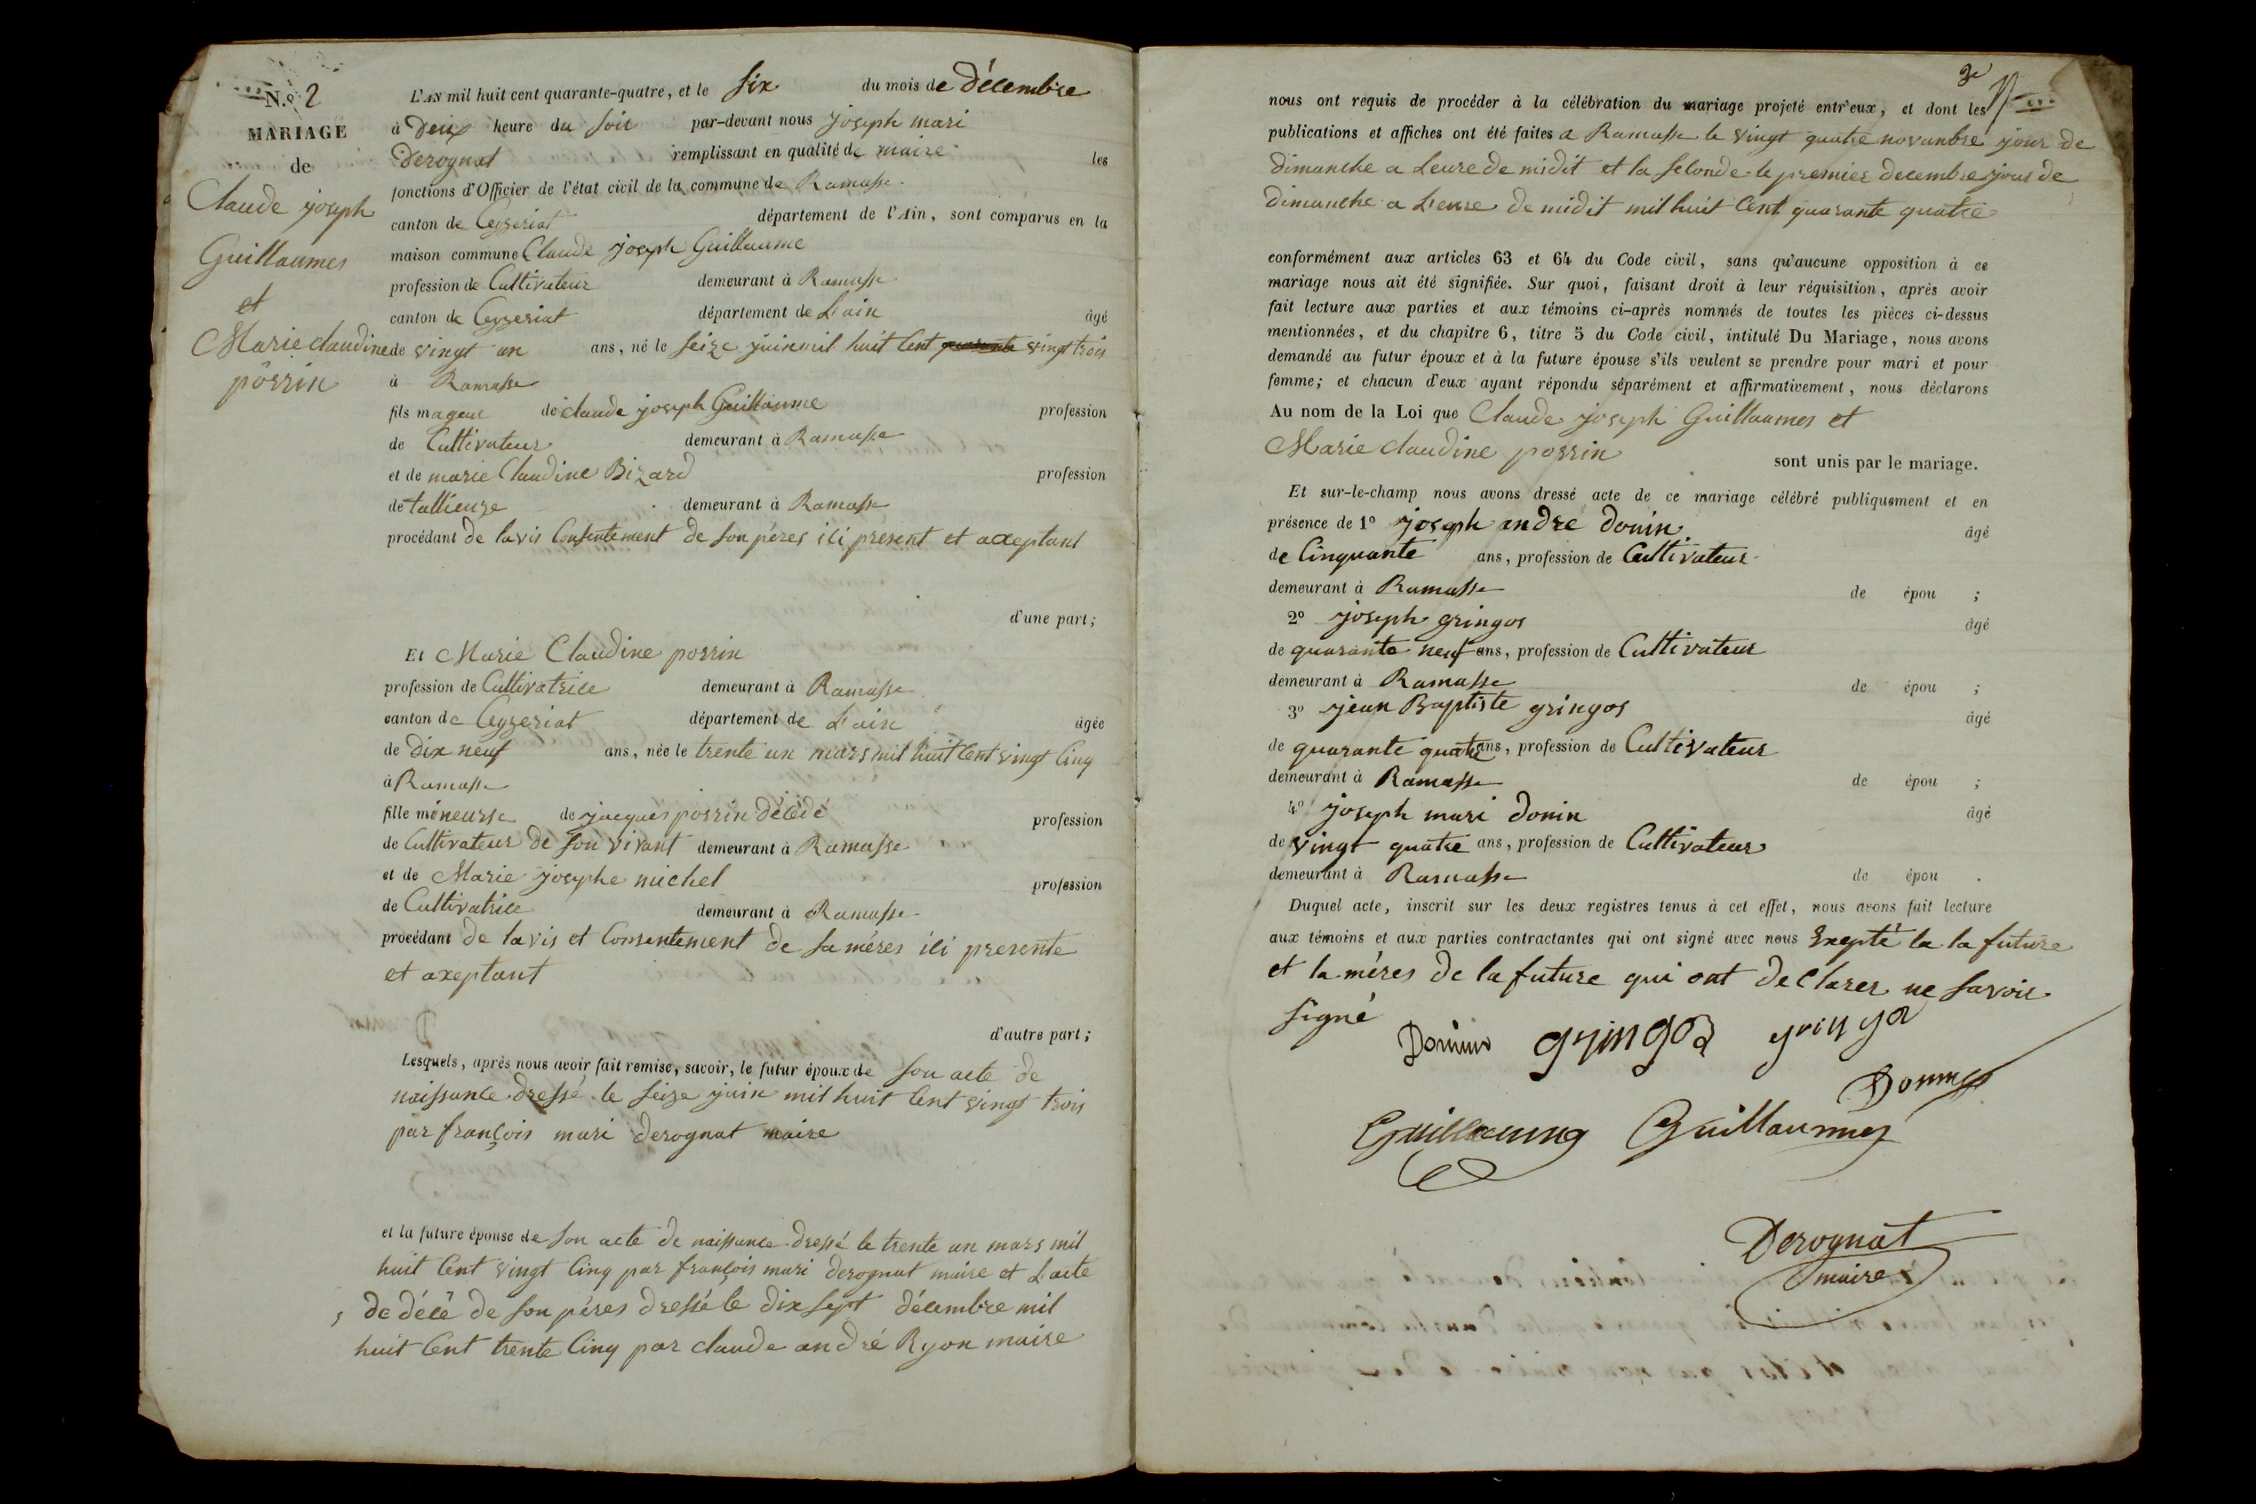 N.o 2
MARIAGE
de
Claude joseph
Guillaumes
et
Marie claudine
porrin
L'AN mil huit cent quarante-quatre, et le six du mois de décembre
à Deux heure du soir par-devant nous joseph mari
Derognat remplissant en qualité de maire les
fonctions d'Officier de l'état civil de la commune de Ramasse
canton de Ceyzeriat département de l'Ain, sont comparus en la
maison commune Claude joseph Guillaume
profession de Cultivateur demeurant à Ramasse
canton de Ceyzeriat département de L'ain âgé
de vingt un ans, né le seize juin mil huit Cent quarante vingt trois
à Ramasse
fils mageur de claude joseph Guillaume profession
de Cultivateur demeurant à Ramasse
et de marie Claudine Bizard profession
de tallieuze demeurant à Ramasse
procédant de lavis Consentement de son péres ici présent et axeptant
d'une part;
Et Marie Claudine porrin
profession de Cultivatrice demeurant à Ramasse
canton de Ceyzeriat département de L'ain âgée
de dix neuf ans, née le trente un mars mil huit Cent vingt Cinq
à Ramasse
fille méneurse de jacques porrin décédé profession
de Cultivateur de son vivant demeurant à Ramasse
et de Marie josephe michel profession
de Cultivatrice demeurant à Ramasse
procédant de lavis et Consentement de sa méres ici presente
et axeptant
d'autre part;
Lesquels, après nous avoir fait remise, savoir, le futur époux de son acte de
naissance dressé le seize juin mil huit Cent vingt trois
par françois mari derognat maire
et la future épouse de son acte de naissance dressé le trente un mars mil
huit Cent vingt Cinq par françois mari derognat maire et L'acte
de décé de son péres dressé le dix sept décembre mil
huit Cent trente Cinq par claude andré Ryon maire
nous ont requis de procéder à la célébration du mariage projeté entr'eux, et dont les
publications et affiches ont été faites a Ramasse le vingt quatre novanbre jour de
dimanche a Leure de midit et la seconde le premier decembre jour de
dimanche a L'eure de midit mil huit Cent quarante quatre
conformément aux articles 63 et 64 du Code civil, sans qu'aucune opposition à ce
mariage nous ait été signifiée. Sur quoi, faisant droit à leur réquisition, après avoir
fait lecture aux parties et aux témoins ci-après nommés de toutes les pièces ci-dessus
mentionnées, et du chapitre 6, titre 5 du Code civil, intitulé Du Mariage, nous avons
demandé au futur époux et à la future épouse s'ils veulent se prendre pour mari et pour
femme; et chacun d'eux ayant répondu séparément et affirmativement, nous déclarons
Au nom de la Loi que Claude joseph Guillaumes et
Marie claudine porrin sont unis par le mariage.
Et sur-le-champ nous avons dressé acte de ce mariage célébré publiquement et en
présence de 1o joseph andre donin âgé
de Cinquante ans, profession de Cultivateur
demeurant à Ramasse de épou ;
2o joseph gringos âgé
de quarante neuf ans, profession de Cultivateur
demeurant à Ramasse de épou ;
3o jean Baptiste gringos âgé
de quarante quatre ans, profession de Cultivateur
demeurant à Ramasse de épou ;
4o joseph mari donin âgé
de vingt quatre ans, profession de Cultivateur
demeurant à Ramasse de épou .
Duquel acte, inscrit sur les deux registres tenus à cet effet, nous avons fait lecture
aux témoins et aux parties contractantes qui ont signé avec nous Exepté la la future
et la méres de la future qui ont declarer ne savoir
signé
Guillaumes
Derognat
maire